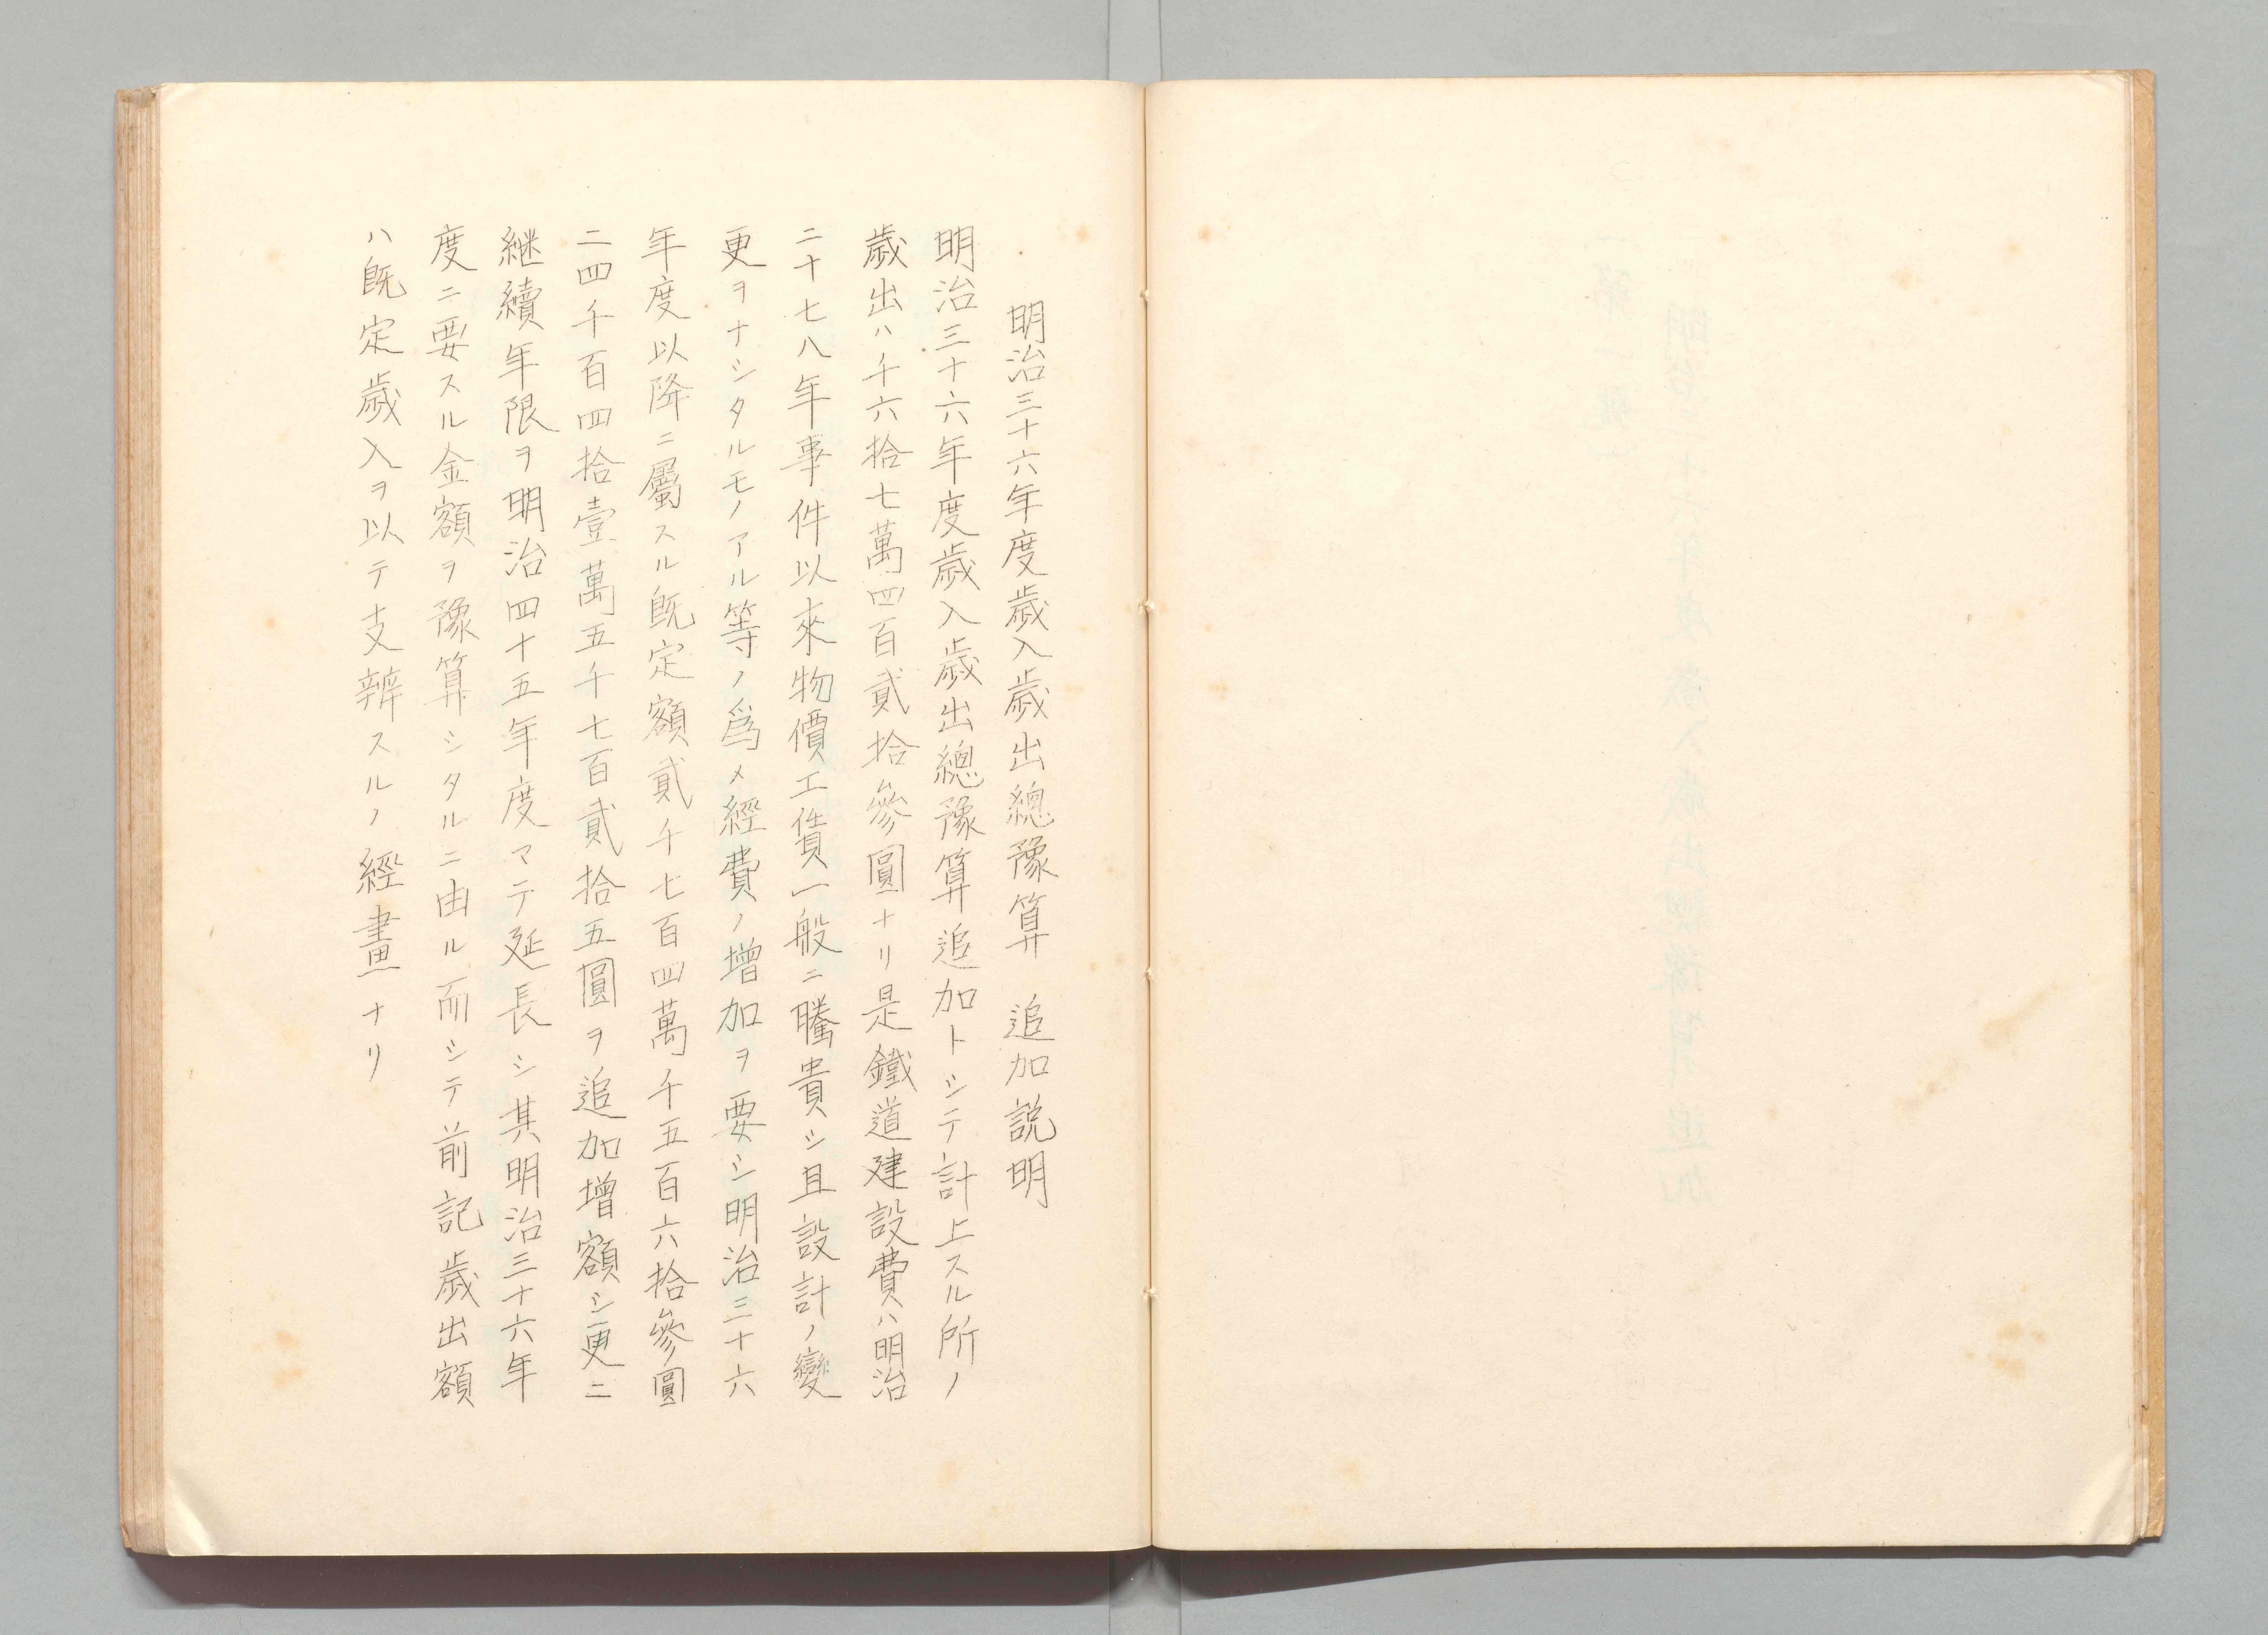 明治三十六年度歳入歳出總豫算　追加説明
明治三十六年度歳入歳出總豫算追加トシテ計上スル所ノ
歳出ハ千六拾七萬四百貳拾參圓ナリ是鐵道建設費ハ明治
二十七八年事件以來物價工賃一般ニ騰貴シ且設計ノ變
更ヲナシタルモノアル等ノ爲メ經費ノ增加ヲ要シ明治三十六
年度以降ニ屬スル既定額貳千七百四萬千五百六拾參圓
ニ四千百四拾壹萬五千七百貳拾五圓ヲ追加增額シ更ニ
継續年限ヲ明治四十五年度マテ延長シ其明治三十六年
度ニ要スル金額ヲ豫算シタルニ由ル而シテ前記歳出額
ハ既定歳入ヲ以テ支辨スルノ經畫ナリ